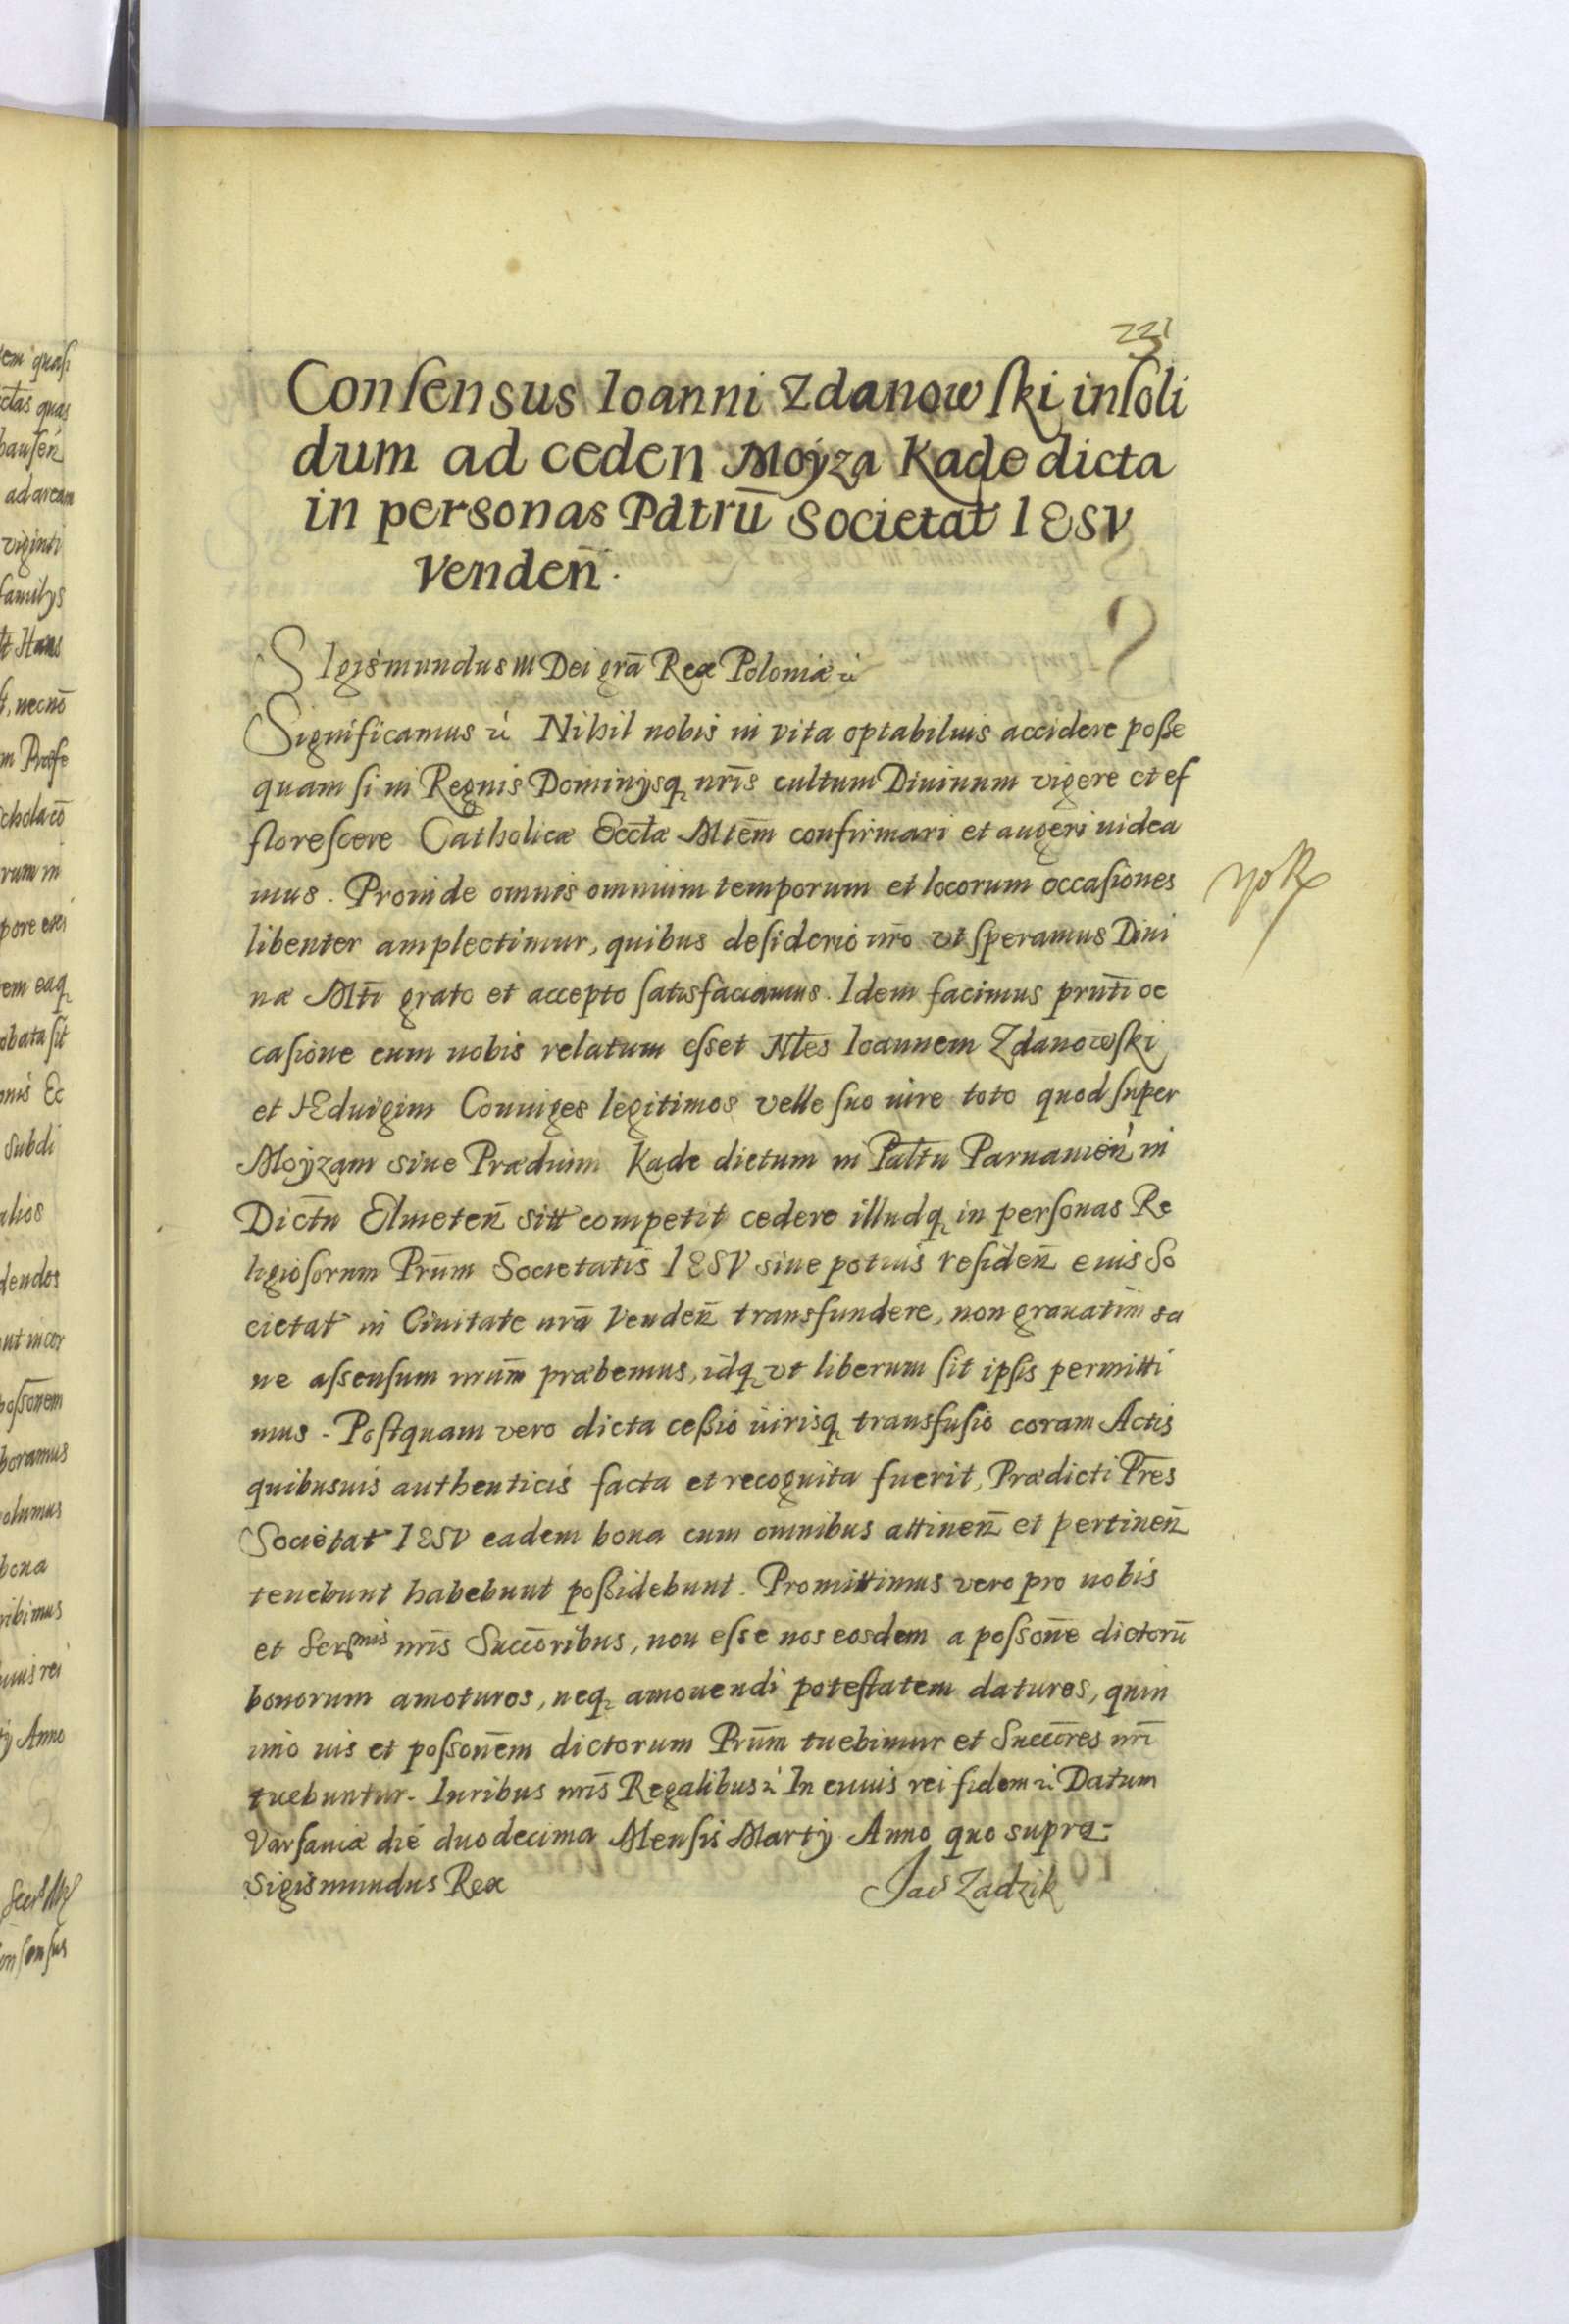 221
Consensus Ioanni Zdanowski insoli
dum ad ceden Moÿza Kade dicta
in personas Patrū Societat IESV
Venden̄.
SIgismundus III Dei grā Rex Poloniæ &
Significamus & Nihil nobis in vita optabilius accidere posse
quam si in Regnis Dominijsq, nr̄is cultum Diuinum vigere et ef
florescere Catholicæ Eccłæ Mtēm confirmari et augeri uidea
mus. Proinde omnes omnium temporum et locorum occasiones
libenter amplectimur, quibus desiderio nr̄o vt speramus Diui
næ Mtī grato et accepto satisfaciamus. Idem facimus prn̄ti oc
casione cum nobis relatum esset Nłes Ioannem Zdanowski
et HEduigim Coniuges legitimos velle suo iure toto quod super
Moÿzam siue Prædium Kade dictum in Pałtu Parnauien̄ in
Dictū Elmeten̄ sitt competit cedere illudq, in personas Re
ligiosorum Pr̄um Societatis IESV siue potius residen̄ eius So
cietat in Ciuitate nrā Venden̄ transfundere, non grauatim sa
ne assensum nr̄um præbemus, idq, vt liberum sit ipsis permitti
mus. Postquam vero dicta cessio iurisq, transfusio coram Actis
quibusuis authenticis facta et recognita fuerit, Prædicti Pr̄es
Societat IESV eadem bona cum omnibus attinen̄ et pertinen̄
tenebunt habebunt possidebunt. Promittimus vero pro nobis
et Sermis nr̄is Succōribus, non esse nos eosdem a possonē dictorū
bonorum amoturos, neq, amouendi potestatem daturos, quin
imo ius et possonēm dictorum Pr̄um tuebimur et Succōres nr̄i
tuebuntur. Iuribus nr̄is Regalibus & In cuius rei fidem & Datum
Varsauiæ die duodecima Mensis Martij Anno quo supra.
Sigismundus Rex Jac Zadzik